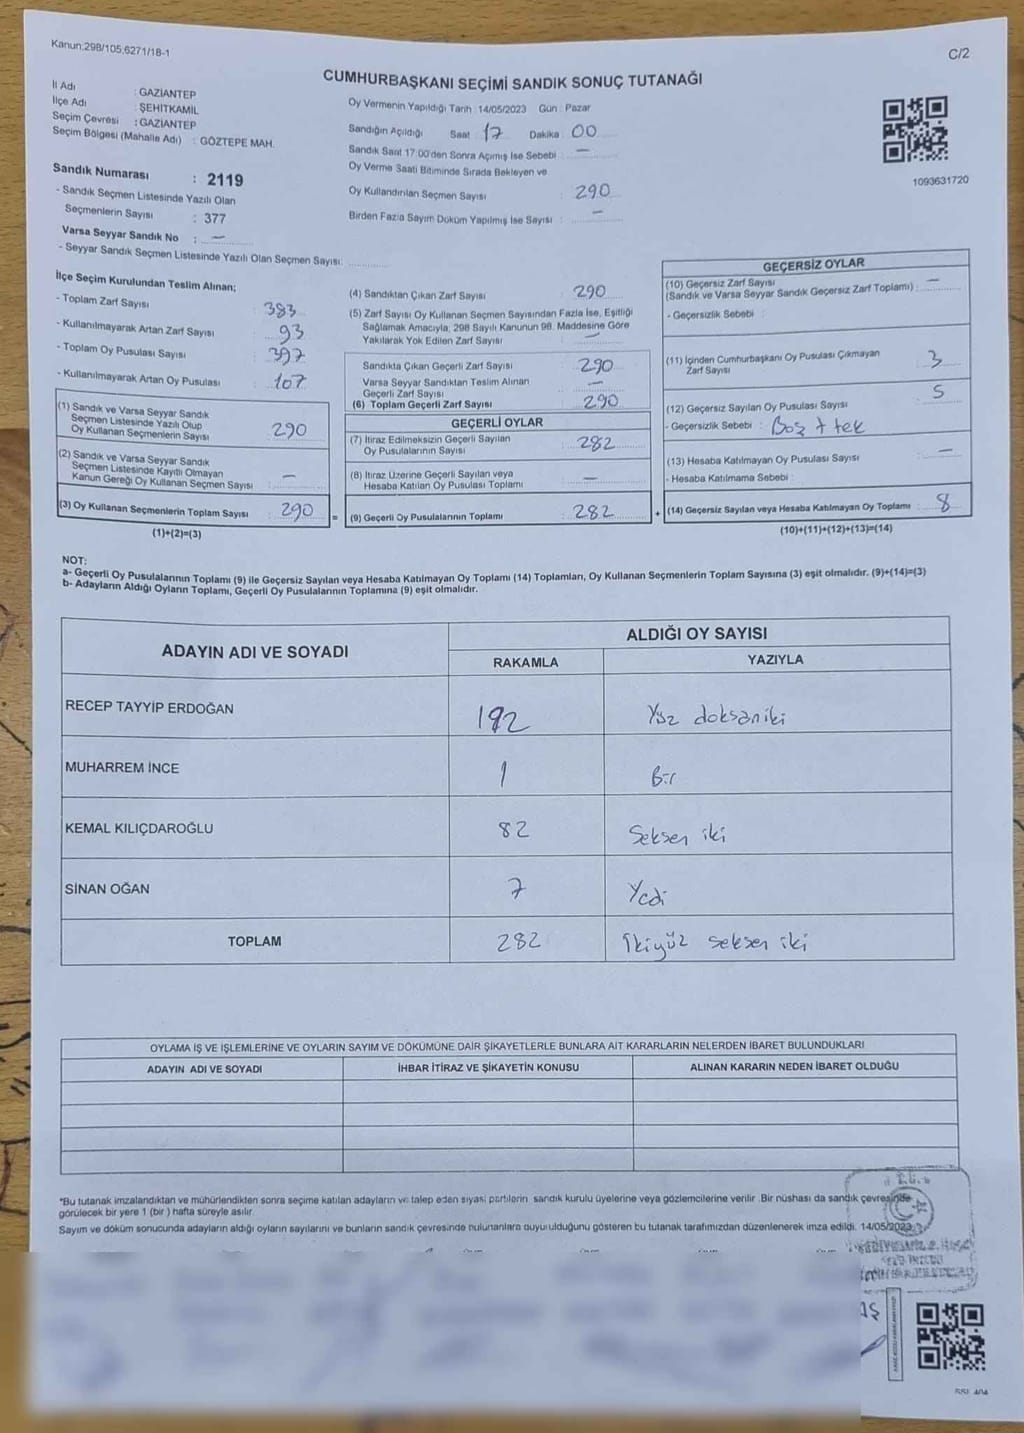 Kanun:298/105,6271/18-1
C/2
CUMHURBAŞKANI SEÇİMİ SANDIK SONUÇ TUTANAĞI
İl Adı : GAZİANTEP
İlçe Adı : ŞEHİTKAMİL
Seçim Çevresi : GAZİANTEP
Seçim Bölgesi (Mahalle Adı) : GÖZTEPE MAH.
Sandık Numarası : 2119
- Sandık Seçmen Listesinde Yazılı Olan
Seçmenlerin Sayısı : 377
Varsa Seyyar Sandık No : —
- Seyyar Sandık Seçmen Listesinde Yazılı Olan Seçmen Sayısı:
Oy Vermenin Yapıldığı Tarih : 14/05/2023 Gün : Pazar
Sandığın Açıldığı Saat : 17 Dakika : 00
Sandık Saat 17:00'den Sonra Açımış İse Sebebi : —
Oy Verme Saati Bitiminde Sırada Bekleyen ve
Oy Kullandırılan Seçmen Sayısı : 290
Birden Fazla Sayım Döküm Yapılmış İse Sayısı : —
1093631720
İlçe Seçim Kurulundan Teslim Alınan;
- Toplam Zarf Sayısı : 383
- Kullanılmayarak Artan Zarf Sayısı : 93
- Toplam Oy Pusulası Sayısı : 397
- Kullanılmayarak Artan Oy Pusulası : 107
(1) Sandık ve Varsa Seyyar Sandık
Seçmen Listesinde Yazılı Olup
Oy Kullanan Seçmenlerin Sayısı : 290
(2) Sandık ve Varsa Seyyar Sandık
Seçmen Listesinde Kayıtlı Olmayan
Kanun Gereği Oy Kullanan Seçmen Sayısı : —
(3) Oy Kullanan Seçmenlerin Toplam Sayısı : 290
(1)+(2)=(3)
(4) Sandıktan Çıkan Zarf Sayısı : 290
(5) Zarf Sayısı Oy Kullanan Seçmen Sayısından Fazla İse, Eşitliği
Sağlamak Amacıyla; 298 Sayılı Kanunun 98. Maddesine Göre
Yakılarak Yok Edilen Zarf Sayısı : —
Sandıkta Çıkan Geçerli Zarf Sayısı : 290
Varsa Seyyar Sandıktan Teslim Alınan
Geçerli Zarf Sayısı : —
(6) Toplam Geçerli Zarf Sayısı : 290
GEÇERLİ OYLAR
(7) İtiraz Edilmeksizin Geçerli Sayılan
Oy Pusulalarının Sayısı : 282
(8) İtiraz Üzerine Geçerli Sayılan veya
Hesaba Katılan Oy Pusulası Toplamı : —
= (9) Geçerli Oy Pusulalarının Toplamı : 282
GEÇERSİZ OYLAR
(10) Geçersiz Zarf Sayısı
(Sandık ve Varsa Seyyar Sandık Geçersiz Zarf Toplamı) : —
- Geçersizlik Sebebi :
(11) İçinden Cumhurbaşkanı Oy Pusulası Çıkmayan
Zarf Sayısı : 3
(12) Geçersiz Sayılan Oy Pusulası Sayısı : 5
- Geçersizlik Sebebi : Boş + tek
(13) Hesaba Katılmayan Oy Pusulası Sayısı : —
- Hesaba Katılmama Sebebi :
+ (14) Geçersiz Sayılan veya Hesaba Katılmayan Oy Toplamı : 8
(10)+(11)+(12)+(13)=(14)
NOT:
a- Geçerli Oy Pusulalarının Toplamı (9) ile Geçersiz Sayılan veya Hesaba Katılmayan Oy Toplamı (14) Toplamları, Oy Kullanan Seçmenlerin Toplam Sayısına (3) eşit olmalıdır. (9)+(14)=(3)
b- Adayların Aldığı Oyların Toplamı, Geçerli Oy Pusulalarının Toplamına (9) eşit olmalıdır.
ADAYIN ADI VE SOYADI
ALDIĞI OY SAYISI
RAKAMLA YAZIYLA
RECEP TAYYİP ERDOĞAN 192 Yüz doksaniki
MUHARREM İNCE 1 Bir
KEMAL KILIÇDAROĞLU 82 Seksen iki
SİNAN OĞAN 7 Yedi
TOPLAM 282 İkiyüz seksen iki
OYLAMA İŞ VE İŞLEMLERİNE VE OYLARIN SAYIM VE DÖKÜMÜNE DAİR ŞİKAYETLERLE BUNLARA AİT KARARLARIN NELERDEN İBARET BULUNDUKLARI
ADAYIN ADI VE SOYADI İHBAR İTİRAZ VE ŞİKAYETİN KONUSU ALINAN KARARIN NEDEN İBARET OLDUĞU
*Bu tutanak imzalandıktan ve mühürlendikten sonra seçime katılan adayların ve talep eden siyasi partilerin sandık kurulu üyelerine veya gözlemcilerine verilir. Bir nüshası da sandık çevresinde
görülecek bir yere 1 (bir) hafta süreyle asılır.
Sayım ve döküm sonucunda adayların aldığı oyların sayılarını ve bunların sandık çevresinde bulunanlara duyurulduğunu gösteren bu tutanak tarafımızdan düzenlenerek imza edildi. 14/05/2023